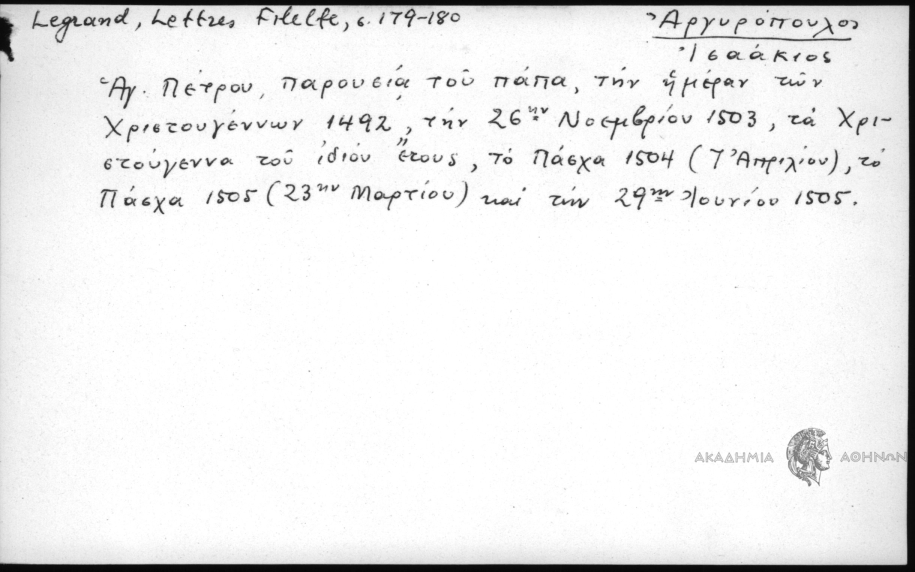 Legrand, Lettres Filelfe, σ. 179-180
Ἀργυρόπουλος
Ἰσαάκιος
Ἁγ. Πέτρου, παρουσίᾳ τοῦ πάπα, τὴν ἡμέραν τῶν
Χριστουγέννων 1492, τὴν 26ην Νοεμβρίου 1503, τὰ Χρι-
στούγεννα τοῦ ἰδίου ἔτους, τὸ Πάσχα 1504 (7 Ἀπριλίου), τὸ
Πάσχα 1505 (23ην Μαρτίου) καὶ τὴν 29ην Ἰουνίου 1505.
ΑΚΑΔΗΜΙΑ ΑΘΗΝΩΝ